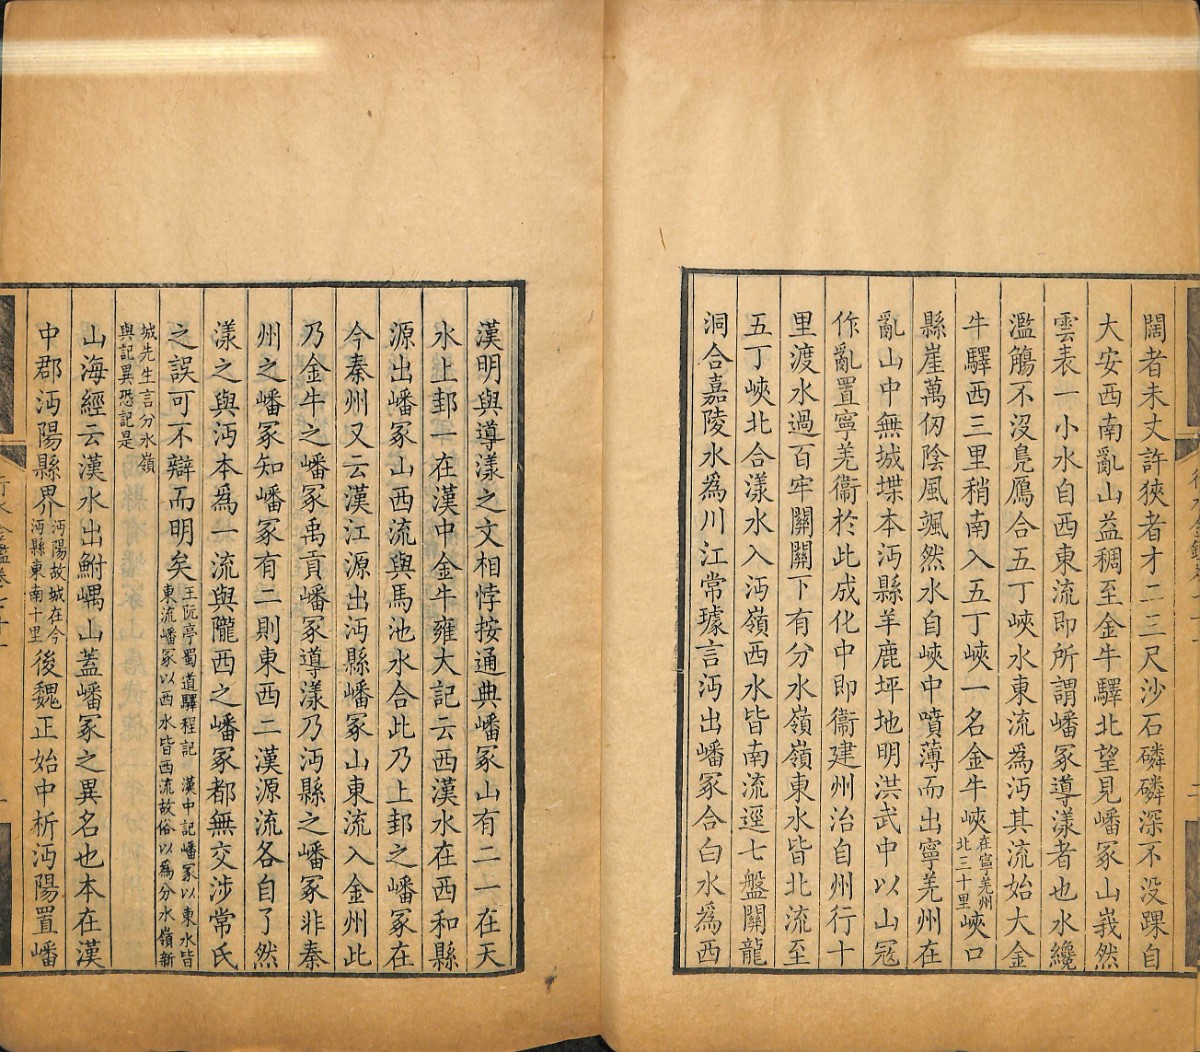 闊者未丈許狹者才二三尺沙石磷磷深不没踝自
大安西南亂山益稠至金牛驛北望見嶓冢山峩然
雲表一小水自西東流即所謂嶓冢導漾者也水纔
濫觴不没鳧鴈合五丁峽水東流為沔其流始大金
牛驛西三里稍南入五丁峽一名金牛峽在寧羌州北三十里峽口
縣崖萬仞陰風颯然水自峽中噴薄而出寧羌州在
亂山中無城堞本沔縣羊鹿坪地明洪武中以山寇
作亂置寧羌衞於此成化中即衞建州治自州行十
里渡水過百牢關關下有分水嶺嶺東水皆北流至
五丁峽北合漾水入沔嶺西水皆南流逕七盤關龍
洞合嘉陵水為川江常璩言沔出嶓冢合白水為西
漢明與導漾之文相悖按通典嶓冢山有二一在天
水上邽一在漢中金牛雍大記云西漢水在西和縣
源出嶓冢山西流與馬池水合此乃上邽之嶓冢在
今秦州又云漢江源出沔縣嶓冢山東流入金州此
乃金牛之嶓冢禹貢嶓冢導漾乃沔縣之嶓冢非秦
州之嶓冢知嶓冢有二則東西二漢源流各自了然
漾之與沔本為一流與隴西之嶓冢都無交涉常氏
之誤可不辯而明矣王阮亭蜀道驛程記 漢中記嶓冢以東水皆東流嶓冢以西水皆西流故俗以為分水嶺新
城先生言分水嶺與記異恐記是
山海經云漢水出鮒嵎山蓋嶓冢之異名也本在漢
中郡沔陽縣界沔陽故城在今沔縣東南十里後魏正始中析沔陽置嶓